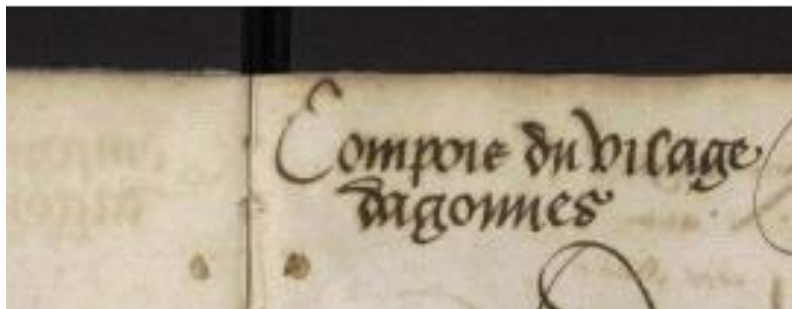 Compoie du vilage
dagonnes